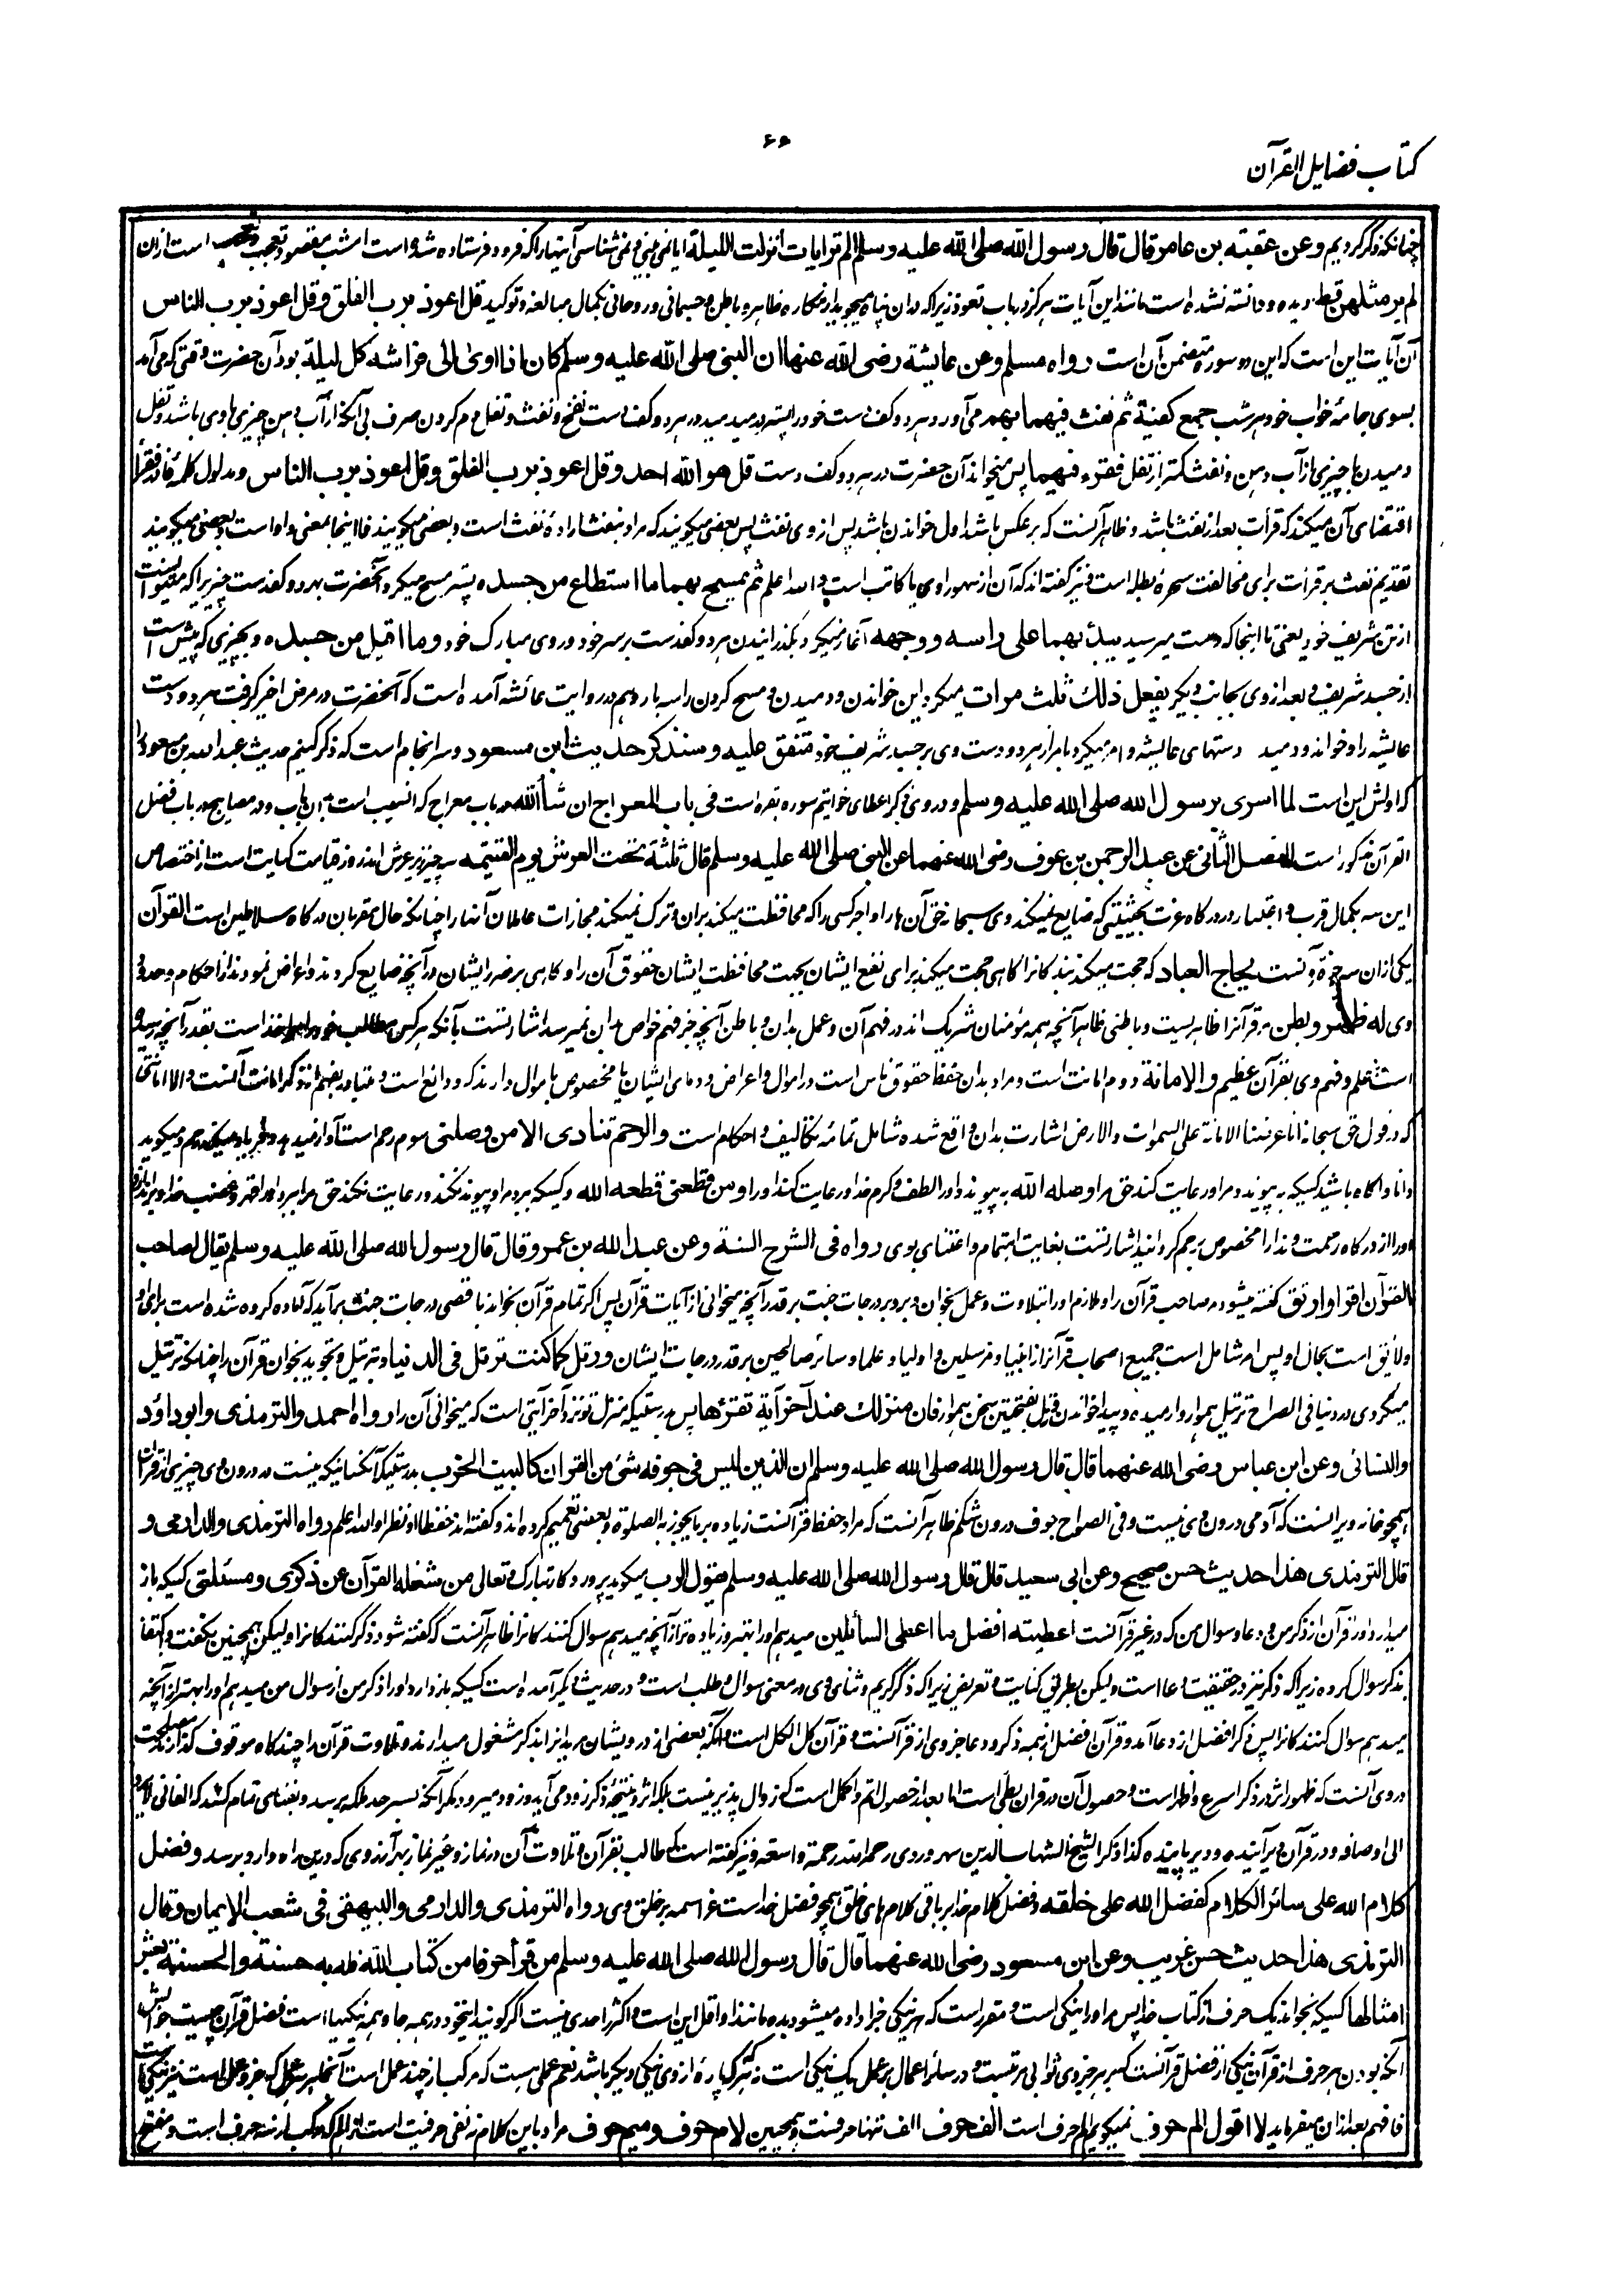 ۶۶
کتاب فضایل القرآن
چنانکه ذکر کردیم وعن عقبته بن عامر قال قال رسول الله صلی الله علیه وسلم الم تر ایات انزلت اللیلة ایا نمی بینی و نمی شناسی آیتها را که فرود فرستاده شده است امشب مقصود تعجب و تعجیب است ازان
لم یر مثلهن قط دیده و دانسته نشده است مانند این آیات هرگز در باب تعوذ زیرا که دران پناه میجوید از مکاره ظاهره و باطن و جسمانی و روحانی بکمال مبالغه و توکید قل اعوذ برب الفلق وقل اعوذ برب الناس
آن آیات این است که این دو سوره متضمن آن است رواه مسلم وعن عایشة رضی الله عنها ان النبی صلی الله علیه وسلم کان اذا اوی الی فراشه کل لیلة بود آن حضرت وقتی که می آمد
بسوی جامهٔ خواب خود هر شب جمع کفیة ثم نفث فیهما بهم می آورد هر دو کف دست خود را پسته در میدمید در هر دو کف دست نفخ و نفث و تفل دم کردن صرف بی آنکه از آب دهن چیزی با وی باشد و تفل
دمیدن با چیزی از آب دهن و نفث کمتر از تفل فقرء فیهما پس میخواند آن حضرت در هر دو کف دست قل هو الله احد وقل اعوذ برب الفلق وقل اعوذ برب الناس و مدلول کلمهٔ فا در فقرأ
اقتضای آن میکند که قرأت بعد از نفث باشد و ظاهر آنست که بر عکس باشد اول خواندن باشد پس از وی نفث پس بعضی میگویند که مراد بنفث ارادهٔ نفث است و بعضی میگویند فا اینجا بمعنی واو است و بعضی میگویند
تقدیم نفث بر قرأت برای مخالفت سحرهٔ بطله است و نیز گفته اند که آن از سهو راوی یا کاتب است والله اعلم ثم یمسح بهما ما استطاع من جسده پستر مسح میکرد آنحضرت بهر دو کف دست چیزیرا که میتوانست
از تن شریف خود یعنی تا اینجا که دست میرسید یبدأ بهما علی راسه ووجهه آغاز میکرد بگذرانیدن هر دو کف دست بر سر خود و روی مبارک خود وما اقبل من جسده و بچیزی که پیش است
از جسد شریف و بعد ازوی بجانب دیگر یفعل ذلک ثلث مرات میکرد این خواندن و دمیدن و مسح کردن را سه بار و هم در روایت عائشه آمده است که آنحضرت در مرض اخیر گرفت هر دو دست
عایشه را و خواند و دمید دستهای عایشه و امر میکرد بامرار هر دو دست وی بر جسد شریف خود متفق علیه وسنذکر حدیث ابن مسعود و سرانجام است که ذکر کنیم حدیث عبدالله بن مسعود را
که اولش این است لما اسری برسول الله صلی الله علیه وسلم و در وی ذکر اعطای خواتیم سوره بقره است فی باب المعراج ان شاء الله در باب معراج که انسب است بآن باب و در مصابیح در باب فضل
القرآن مذکور است الفصل الثانی عن عبد الرحمن بن عوف رضی الله عنهما عن النبی صلی الله علیه وسلم قال ثلثة تحت العرش یوم القیمه سه چیز زیر عرش اند روز قیامت کنایت است از اختصاص
این سه بکمال قرب و اعتبار در درگاه عزت بحیثیتی که ضایع نمیکند وی سبحانه حق آن ها را و اجر کسی را که محافظت میکند بران و ترک نمیکند مجازات عاملان آنها را چنانکه حال مقربان درگاه سلاطین است القرآن
یکی ازان سه چیز قرآنست یحاج العباد که حجت میکند بندگانرا گاهی حجت میکند برای نفع ایشان بجهت محافظت ایشان حقوق آن را و گاهی بر ضرر ایشان در آنچه ضایع کردند و اعراض نمودند از احکام و حدود
وی له ظهر وبطن مر قرآنرا ظاهریست و باطنی ظاهر آنچه همه مؤمنان شریک اند در فهم آن و عمل بدان و باطن آنچه جز فهم خواص بدان نمیرسد اشارتست بآنکه هر کس مطالب خود را ماخوذ است بقدر آنچه رسیده
است علم و فهم وی بقرآن عظیم والامانة دوم امانت است و مراد بدان حفظ حقوق ناس است در اموال و اعراض و دمای ایشان یا مخصوص باموال دارند که ودائع است و متبادر بفهم از ذکر امانت آنست و الا امانتی
که در قول حق سبحانه انا عرضنا الامانة علی السموات والارض اشارت بدان واقع شده شامل تمامهٔ تکالیف و احکام است والرحم تنادی الا من وصلنی سوم رحم است آواز میدهد و فریاد میکند رحم و میگوید
دانا و آگاه باشید کسیکه به پیوندد مرا و رعایت کند حق مرا وصله الله به پیوندد اورا لطف و کرم خدا و رعایت کند اورا ومن قطعنی قطعه الله و کسیکه ببرد مرا و پیوند نکند و رعایت نکند حق مرا ببرد اورا قهر و غضب خدا و براند
اورا از درگاه رحمت و ندا را مخصوص برحم گردانید اشارتست بغایت اهتمام و اعتنای بوی رواه فی الشرح السنة وعن عبد الله بن عمرو قال قال رسول الله صلی الله علیه وسلم یقال لصاحب
القرآن اقرا وارتق گفته میشود مر صاحب قرآن را و ملازم اورا بتلاوت و عمل بخوان و برو بر درجات جنت بر قدر آنچه میخوانی از آیات قرآن پس اگر تمام قرآن بخواند باقصی درجات جنت برآید که آماده کرده شده است برای او
و لائق است بحال او پس امر شامل است جمیع اصحاب قرآنرا از انبیا و مرسلین و اولیا و علما و سائر صالحین بر قدر درجات ایشان ورتل کما کنت ترتل فی الدنیا و بترتیل و تجوید بخوان قرآن را چنانکه ترتیل
میکردی در دنیا فی الصراح ترتیل هموار و ارمیده و پیدا خواندن رتل بفتحتین سخن هموار فان منزلک عند آخر آیة تقرؤها پس بدرستیکه منزل تو نزد آخر آیتی است که میخوانی آن را رواه احمد والترمذی وابو داود
والنسائی وعن ابن عباس رضی الله عنهما قال قال رسول الله صلی الله علیه وسلم ان الذین لیس فی جوفه شئ من القران کالبیت الخرب بدرستیکه آنکسانیکه نیست در درون وی چیزی از قرآن
همچو خانه ویرانست که آدمی درون وی نیست وفی الصراح جوف درون شکم ظاهر آنست که مراد حفظ قرآنست زیاده بر ما یجوز به الصلوة و بعضی تعمیم کرده اند و گفته اند حفظا او نظرا والله اعلم رواه الترمذی والدارمی و
قال الترمذی هذا حدیث حسن صحیح وعن ابی سعید قال قال رسول الله صلی الله علیه وسلم یقول الرب میگوید پروردگار تبارک و تعالی من شغله القرآن عن ذکری ومسئلتی کسیکه باز
میدارد اورا قرآن از ذکر من و دعا و سوال من که در غیر قرآنست اعطیته افضل ما اعطی السائلین میدهم اورا بهتر و زیاده تر از آنچه میدهم سوال کنندگانرا ظاهر آنست که گفته شود ذکر کنندگانرا و لیکن همچنین نگفت و اکتفا
بذکر سوال کرده زیرا که ذکر نیز در حقیقت دعا است و لیکن بطریق کنایت و تعریض زیرا که ذکر کریم و ثنای وی در معنی سوال و طلب است و در حدیث دیگر آمده است کسیکه باز دارد اورا ذکر من از سوال من میدهم اورا بهتر از آنچه
میدهم سوال کنندگانرا پس ذکر افضل از دعا آمد و قرآن افضل از همه ذکر و دعا جزوی از قرآنست و قرآن کل الکل است و آنکه بعضی از درویشان مریدانرا بذکر مشغول میدارند و تلاوت قرآن را چندگاه موقوف گذارند مصلحت
در وی آنست که ظهور اثر در ذکر اسرع و اظهر است و حصول آن در قرآن بطی است اما بعد از حصول اتم و اکمل است که زوال پذیر نیست بلکه اثر و نتیجهٔ ذکر زود می آید و زود میرود مگر آنکه بسرحد ملکه برسد و بفنای تمام کشد که الفانی لا یرد
الی اوصافه و در قرآن دیر آینده و دیر پاینده کذا ذکر الشیخ الشهاب الدین سهروردی رحمه الله رحمة واسعة و نیز گفته است که طالب بقرآن و تلاوت آن در نماز و غیر نماز بهر آرزوی که درین راه دارد برسد وفضل
کلام الله علی سائر الکلام کفضل الله علی خلقه و فضل کلام خدا بر باقی کلام های خلق همچو فضل خداست عز اسمه بر خلق وی رواه الترمذی والدارمی والبیهقی فی شعب الایمان وقال
الترمذی هذا حدیث حسن غریب وعن ابن مسعود رضی الله عنهما قال قال رسول الله صلی الله علیه وسلم من قرأ حرفا من کتاب الله فله به حسنة والحسنة بعشر
امثالها کسیکه بخواند یک حرف از کتاب خدا پس مر اورا نیکی است و مقرر است که هر نیکی جزا داده میشود بده مانند او اقل این است و اکثر را حدی نیست اگر گویند اینخود در همه جا و همه نیکیها است فضل قرآن چیست جوابش
آنکه بودن هر حرف از قرآن نیکی از فضل قرآنست که بر هر جزوی ثوابی مرتبست و در سائر اعمال بر عمل یک نیکی است نه که هر پارهٔ از وی نیکی دیگر باشد نعم عملی هست که مرکب از چند عمل است آنجا بر هر عمل که جزو عمل است نیز نیکی
فافهم بعد ازان میفرماید لا اقول الم حرف نمیگویم الم حرف است الف حرف الف تنها حرفست و همچنین لام حرف ومیم حرف مراد باین کلام نه نفی حرفیت است از الم که مرکب از سه حرف است